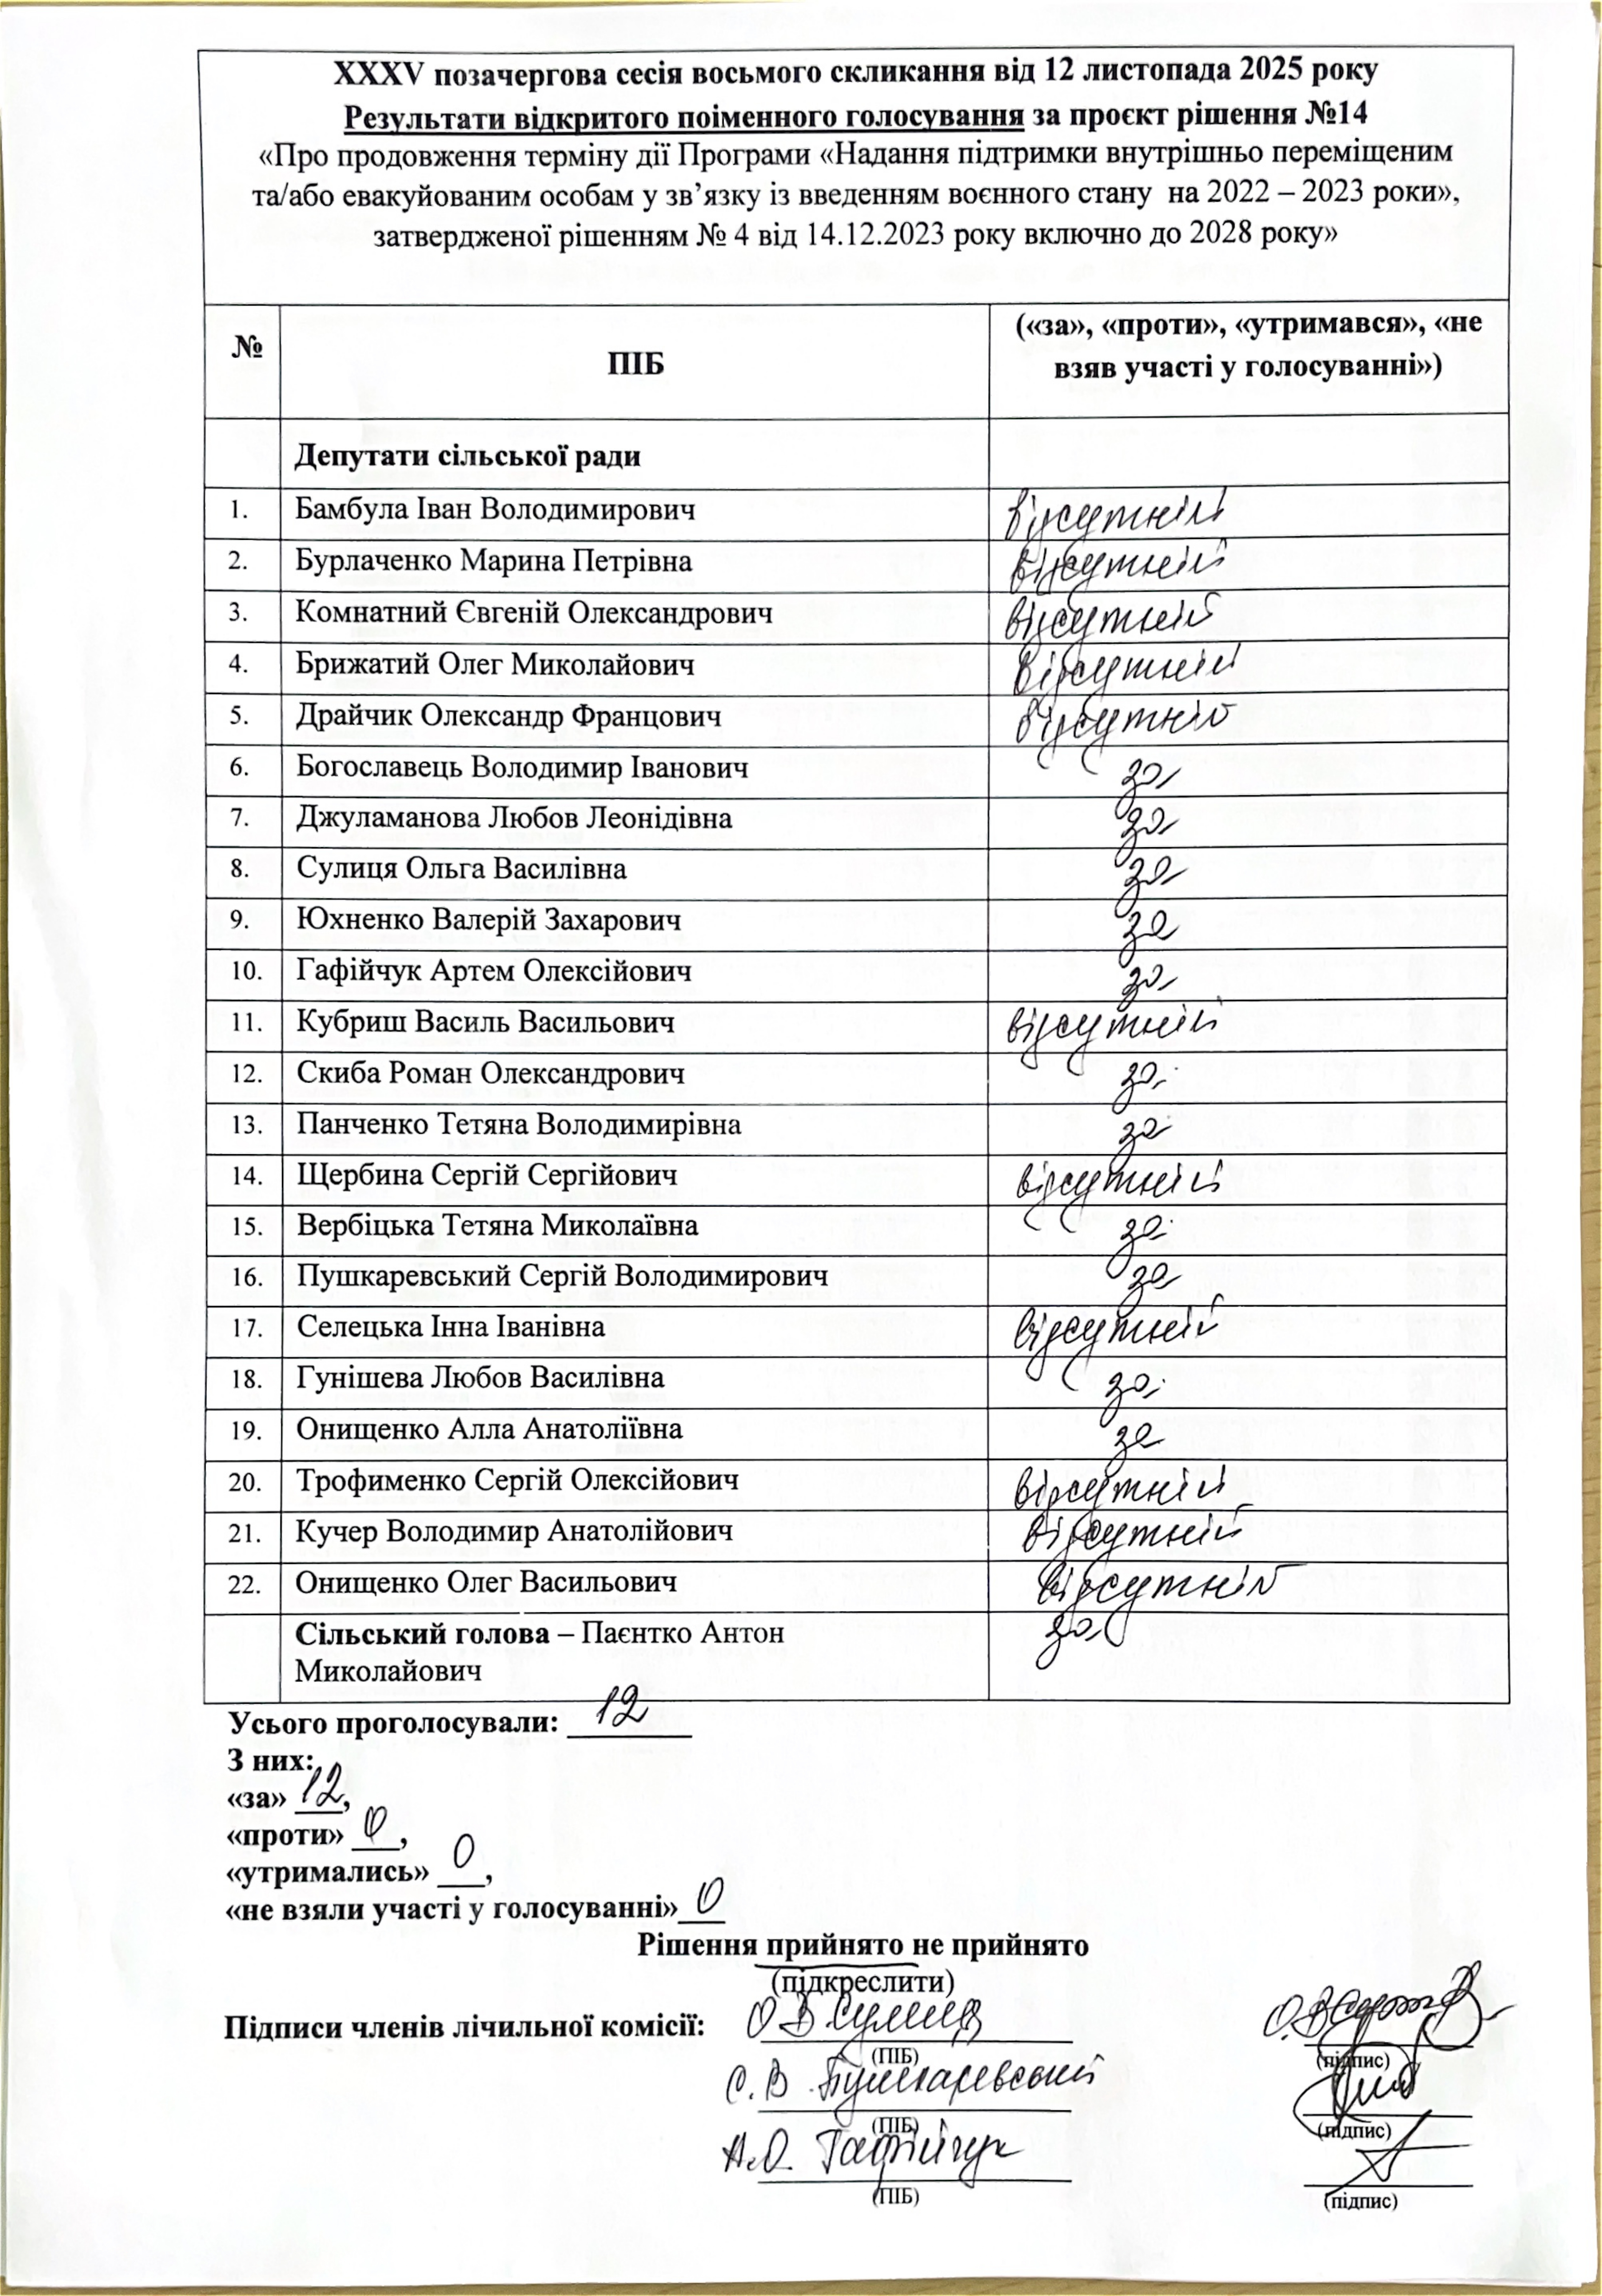 XXXV позачергова сесія восьмого скликання від 12 листопада 2025 року
Результати відкритого поіменного голосування за проєкт рішення №14
«Про продовження терміну дії Програми «Надання підтримки внутрішньо переміщеним
та/або евакуйованим особам у зв’язку із введенням воєнного стану на 2022 – 2023 роки»,
затвердженої рішенням № 4 від 14.12.2023 року включно до 2028 року»
№ ПІБ («за», «проти», «утримався», «не
взяв участі у голосуванні»)
Депутати сільської ради
1. Бамбула Іван Володимирович відсутній
2. Бурлаченко Марина Петрівна відсутній
3. Комнатний Євгеній Олександрович відсутній
4. Брижатий Олег Миколайович відсутній
5. Драйчик Олександр Францович відсутній
6. Богославець Володимир Іванович за
7. Джуламанова Любов Леонідівна за
8. Сулиця Ольга Василівна за
9. Юхненко Валерій Захарович за
10. Гафійчук Артем Олексійович за
11. Кубриш Василь Васильович відсутній
12. Скиба Роман Олександрович за
13. Панченко Тетяна Володимирівна за
14. Щербина Сергій Сергійович відсутній
15. Вербіцька Тетяна Миколаївна за
16. Пушкаревський Сергій Володимирович за
17. Селецька Інна Іванівна відсутній
18. Гунішева Любов Василівна за
19. Онищенко Алла Анатоліївна за
20. Трофименко Сергій Олексійович відсутній
21. Кучер Володимир Анатолійович відсутній
22. Онищенко Олег Васильович відсутній
Сільський голова – Паєнтко Антон за
Миколайович
Усього проголосували: 12
З них:
«за» 12,
«проти» 0,
«утримались» 0,
«не взяли участі у голосуванні» 0
Рішення прийнято не прийнято
(підкреслити)
Підписи членів лічильної комісії: О.В Сулиця
(ПІБ) (підпис)
С. В. Пушкаревський
(ПІБ) (підпис)
А.О. Гафійчук
(ПІБ) (підпис)